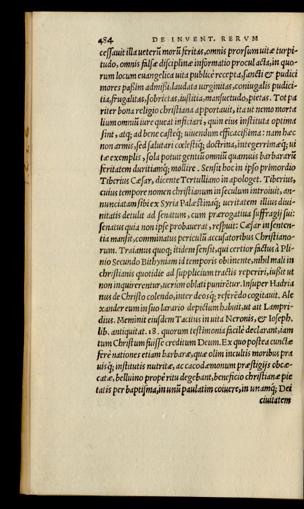 484 DE INVENT. RERVM
cessauit illa ueterū morū feritas, omnis prorsum uitæ turpi-
tudo, omnis falsæ disciplinæ informatio procul acta, in quo-
rum locum euangelica uita publicè recepta, sancti & pudici
mores paßim admißi, laudata uirginitas, coniugalis pudici-
tia, frugalitas, sobrietas, iustitia, mansuetudo, pietas. Tot pa
riter bona religio christiana apportauit, ita ut nemo morta
lium omniū iure queat inficiari, quin eius instituta optima
sint, atq; ad bene casteq; uiuendum efficacißima: nam hæc
non armis, sed salutari cœlestiq; doctrina, integerrimæq; ui
tæ exemplis, sola potuit gentiū omniū quamuis barbararū
feritatem duritiamq; mollire. Sensit hoc in ipso primordio
Tiberius Cæsar, dicente Tertulliano in apologet. Tiberius,
cuius tempore nomen christianum in seculum introiuit, an-
nunciatam sibi ex Syria Palæstinaq; ueritatem illius diui-
nitatis detulit ad senatum, cum prærogatiua suffragij sui:
senatus quia non ipse probauerat, respuit: Cæsar in senten-
tia mansit, comminatus periculū accusatoribus Christiano-
rum. Traianus quoq; itidem sensit, qui certior factus à Pli-
nio Secundo Bithyniam id temporis obtinente, nihil mali in
christianis quotidie ad supplicium tractis reperiri, iußit ut
non inquirerentur, uerùm oblati punirētur. Insuper Hadria
nus de Christo colendo, inter deosq; referēdo cogitauit. Ale
xander eum in suo larario depictum habuit, ut ait Lampri-
dius. Meminit eiusdem Tacitus in uita Neronis, & Ioseph.
lib. antiquitat. 18. quorum testimonia facilè declarant, iam
tum Christum fuisse creditum Deum. Ex quo postea cunctæ
ferè nationes etiam barbaræ, quæ olim incultis moribus pra
uisq; institutis nutritæ, ac cacodæmonum præstigijs obcæ-
catæ, belluino propè ritu degebant, beneficio christianæ pie
tatis per baptisma, in unū paulatim coiuere, in unamq; Dei
ciuitatem